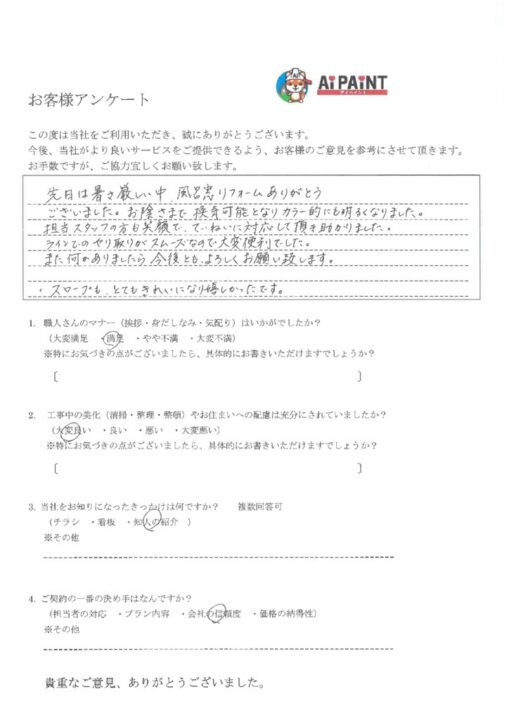 Ai PAiNT
アイペイント
お客様アンケート
この度は当社をご利用いただき、誠にありがとうございます。
今後、当社がより良いサービスをご提供できるよう、お客様のご意見を参考にさせて頂きます。
お手数ですが、ご協力宜しくお願い致します。
先日は暑さ厳しい中、風呂窓リフォームありがとう
ございました。お陰さまで換気可能となりカラー的にも明るくなりました。
担当スタッフの方も笑顔で、ていねいに対応して頂き助かりました。
ラインでのやり取りがスムーズなので大変便利でした。
また何かありましたら今後とも、よろしくお願い致します。
・スロープも、とてもきれいになり嬉しかったです。
1. 職人さんのマナー（挨拶・身だしなみ・気配り）はいかがでしたか？
（大変満足 ・満足 ・やや不満 ・大変不満）
※特にお気づきの点がございましたら、具体的にお書きいただけますでしょうか？
〔 〕
2. 工事中の美化（清掃・整理・整頓）やお住まいへの配慮は充分にされていましたか？
（大変良い ・良い ・悪い ・大変悪い）
※特にお気づきの点がございましたら、具体的にお書きいただけますでしょうか？
〔 〕
3. 当社をお知りになったきっかけは何ですか？ 複数回答可
（チラシ ・看板 ・知人の紹介 ）
※その他
4. ご契約の一番の決め手はなんですか？
（担当者の対応 ・プラン内容 ・会社の信頼度 ・価格の納得性）
※その他
貴重なご意見、ありがとうございました。